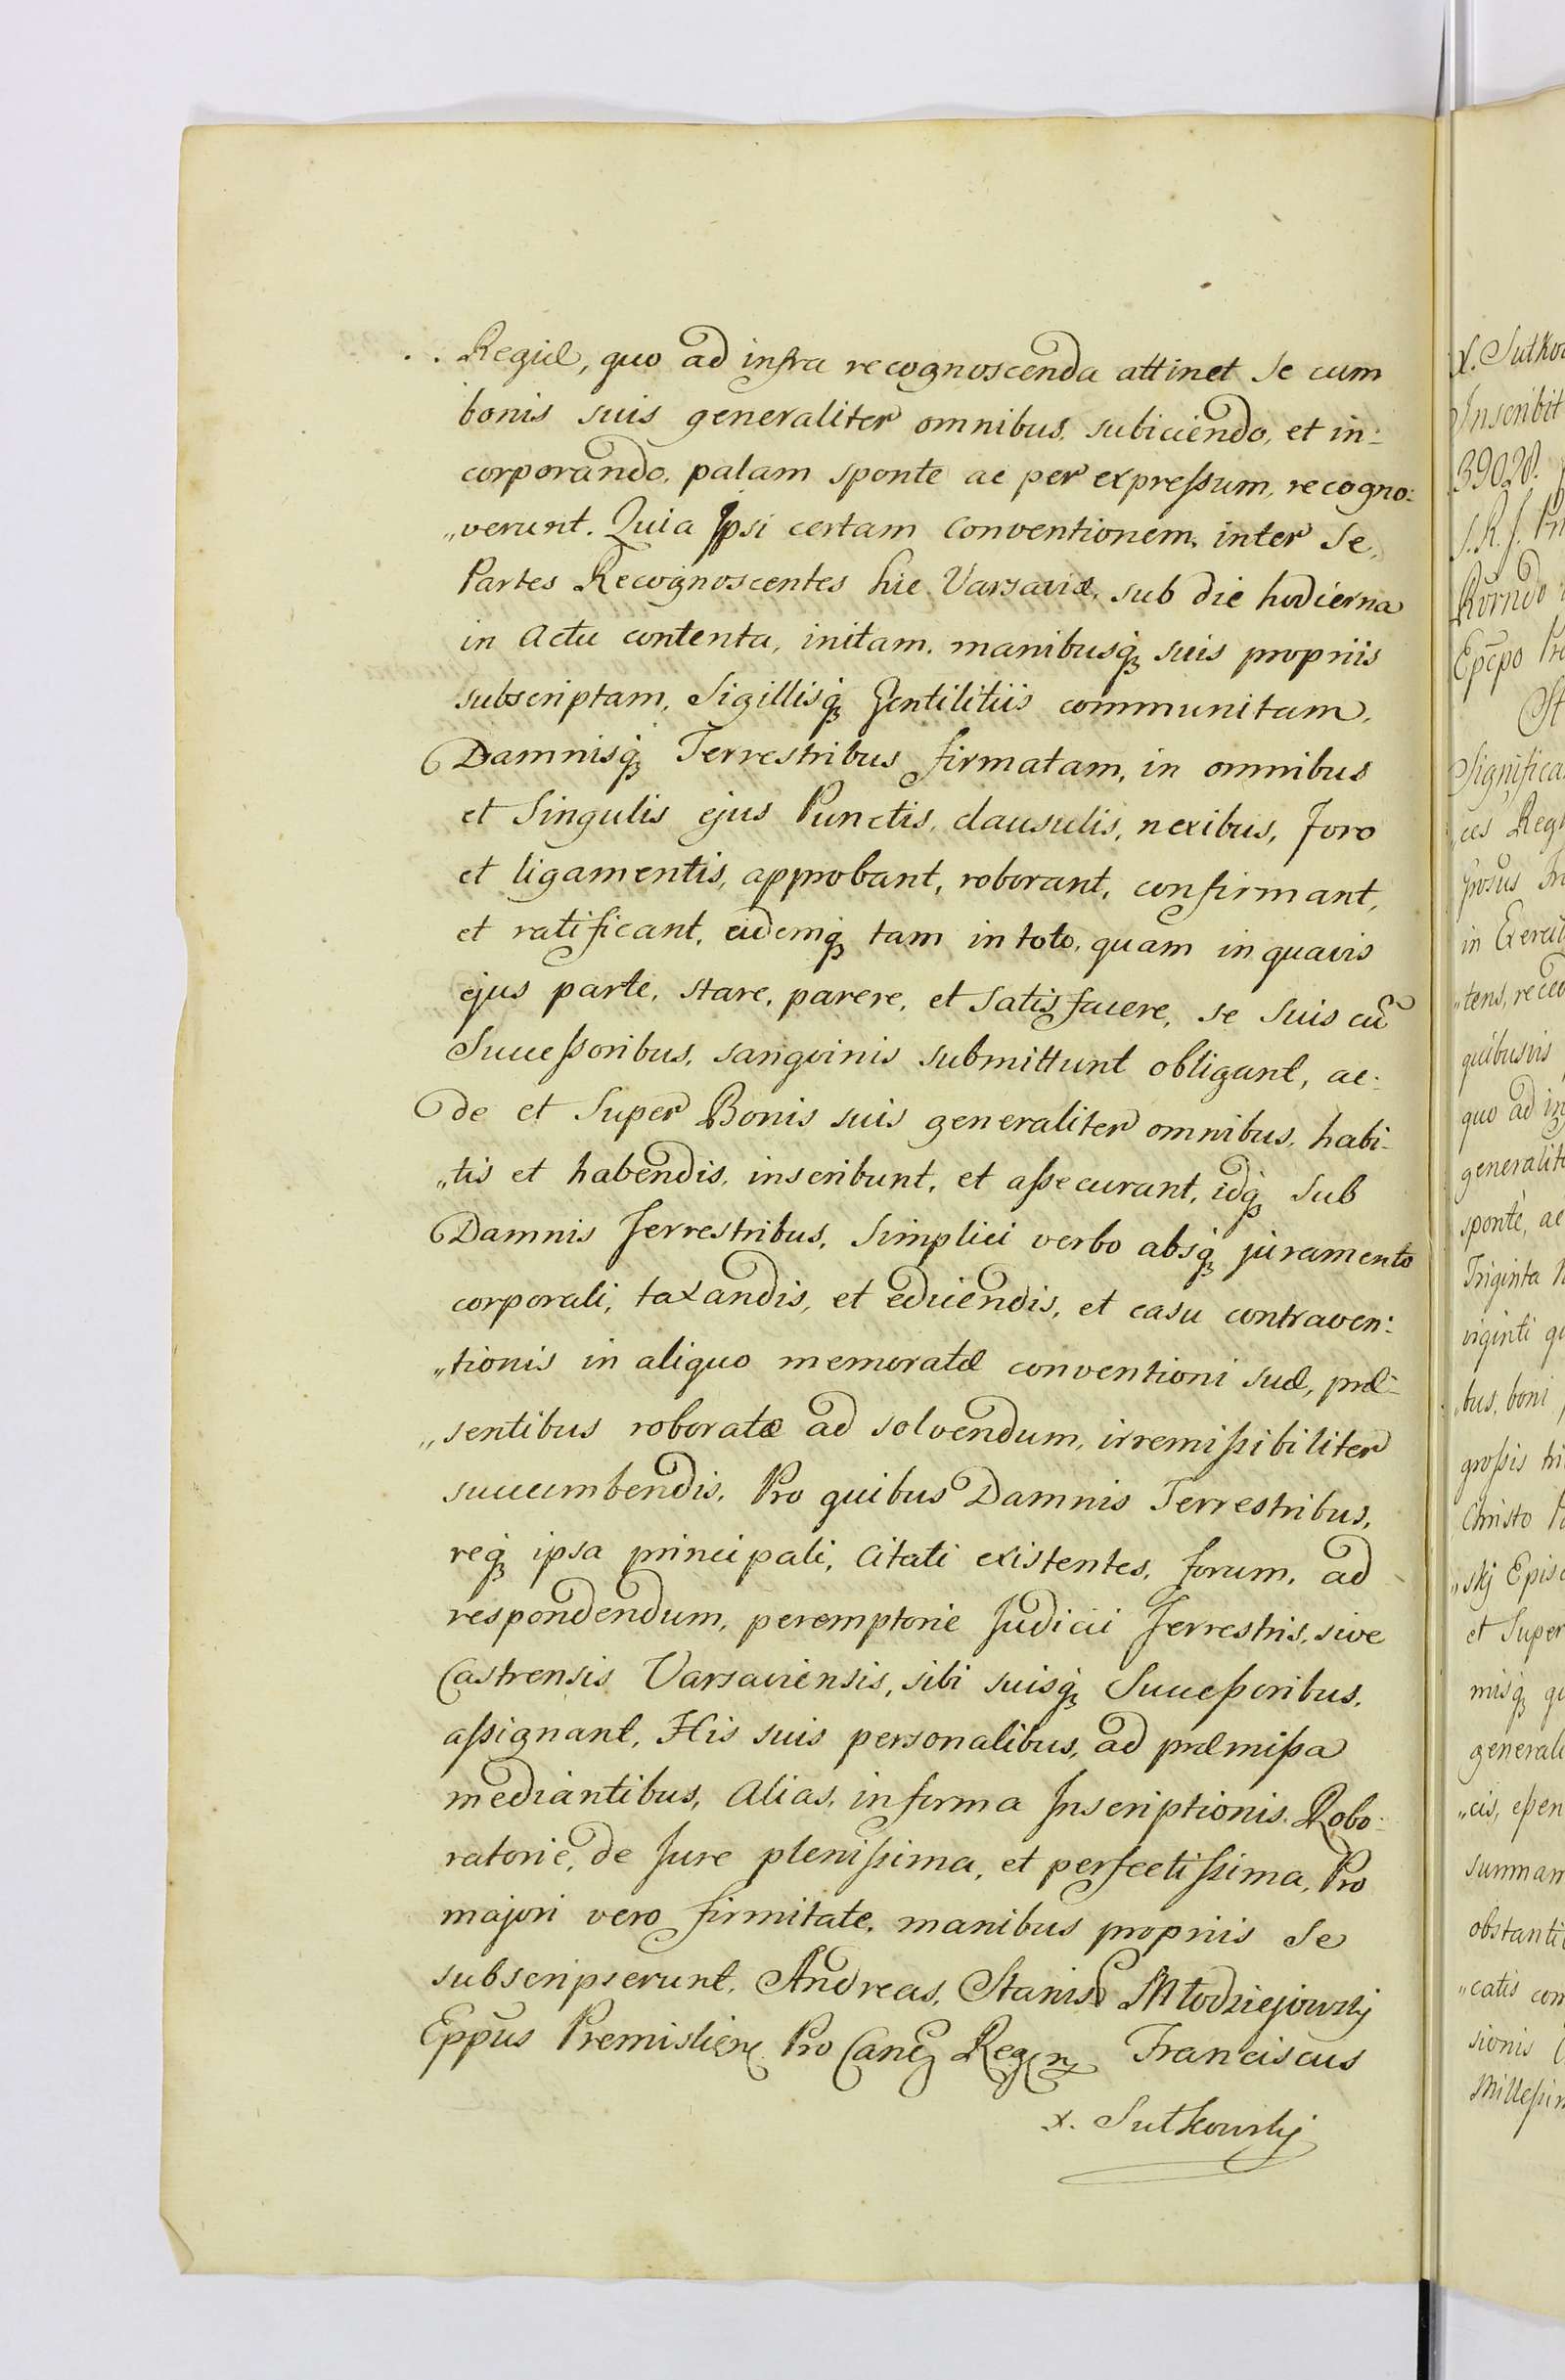 Regiæ, quo ad infra recognoscenda attinet Se cum
bonis suis generaliter omnibus, subiiciendo, et in-
corporando, palam sponte ac per expreſsum, recogno-
„verunt. Quia Ipsi certam Conventionem, inter Se,
Partes Recognoscentes hic Varsaviæ, sub die hodierna
in Actu contenta, initam, manibusq́ꝫ suis propriis
subscriptam, Sigillisq́ꝫ Gentilitiis communitam,
Damnisq́ꝫ Terrestribus firmatam, in omnibus
et Singulis ejus Punctis, clausulis, nexibus, Foro
et ligamentis, approbant, roborant, confirmant,
et ratificant, eidemq́ꝫ tam in toto, quam in quavis
ejus parte, stare, parere, et Satisfacere, se Suis cũ
Succeſsoribus, sangvinis submittunt obligant, ac
de et Super Bonis suis generaliter omnibus, habi-
„tis et habendis, inscribunt, et aſsecurant, idq́ꝫ Sub
Damnis Terrestribus, Simplici verbo absq́ꝫ juramento
corporali, taxandis, et educendis, et casu contraven-
„tionis in aliquo memoratæ conventioni suæ, præ-
„sentibus roboratæ ad solvendum, irremiſsibiliter
succumbendis, Pro quibus Damnis Terrestribus,
req́ꝫ ipsa principali, Citati existentes, forum, ad
respondendum, peremptorie Judicii Terrestris, sive
Castrensis Varsaviensis, sibi suisq́ꝫ Succeſsoribus,
aſsignant, His suis personalibus, ad præmiſsa
mediantibus, Alias, in forma Inscriptionis Robo-
ratorie, de Jure pleniſsima, et perfectiſsima, Pro
majori vero firmitate, manibus propriis Se
subscripserunt. Andreas, Stanisł Młodziejowskj
Eppus Premislien Pro Canc Regn Franciscus
x. Sułkowskj
x. Sułkow
Inscribit
39028.
S.R.J. Pri
Epcpo
Significa
ces Reg
in Exercit
„tens, reco
quibusvis
quo ad in
generalit
sponte, ac
Triginta
viginti qu
bus, boni
groſsis tri
Christo
„skj Episc
et Super
misq́ꝫ qu
generali
„cis, eſsen
summam
obstanti
„catis con
sionis
Milleſsim